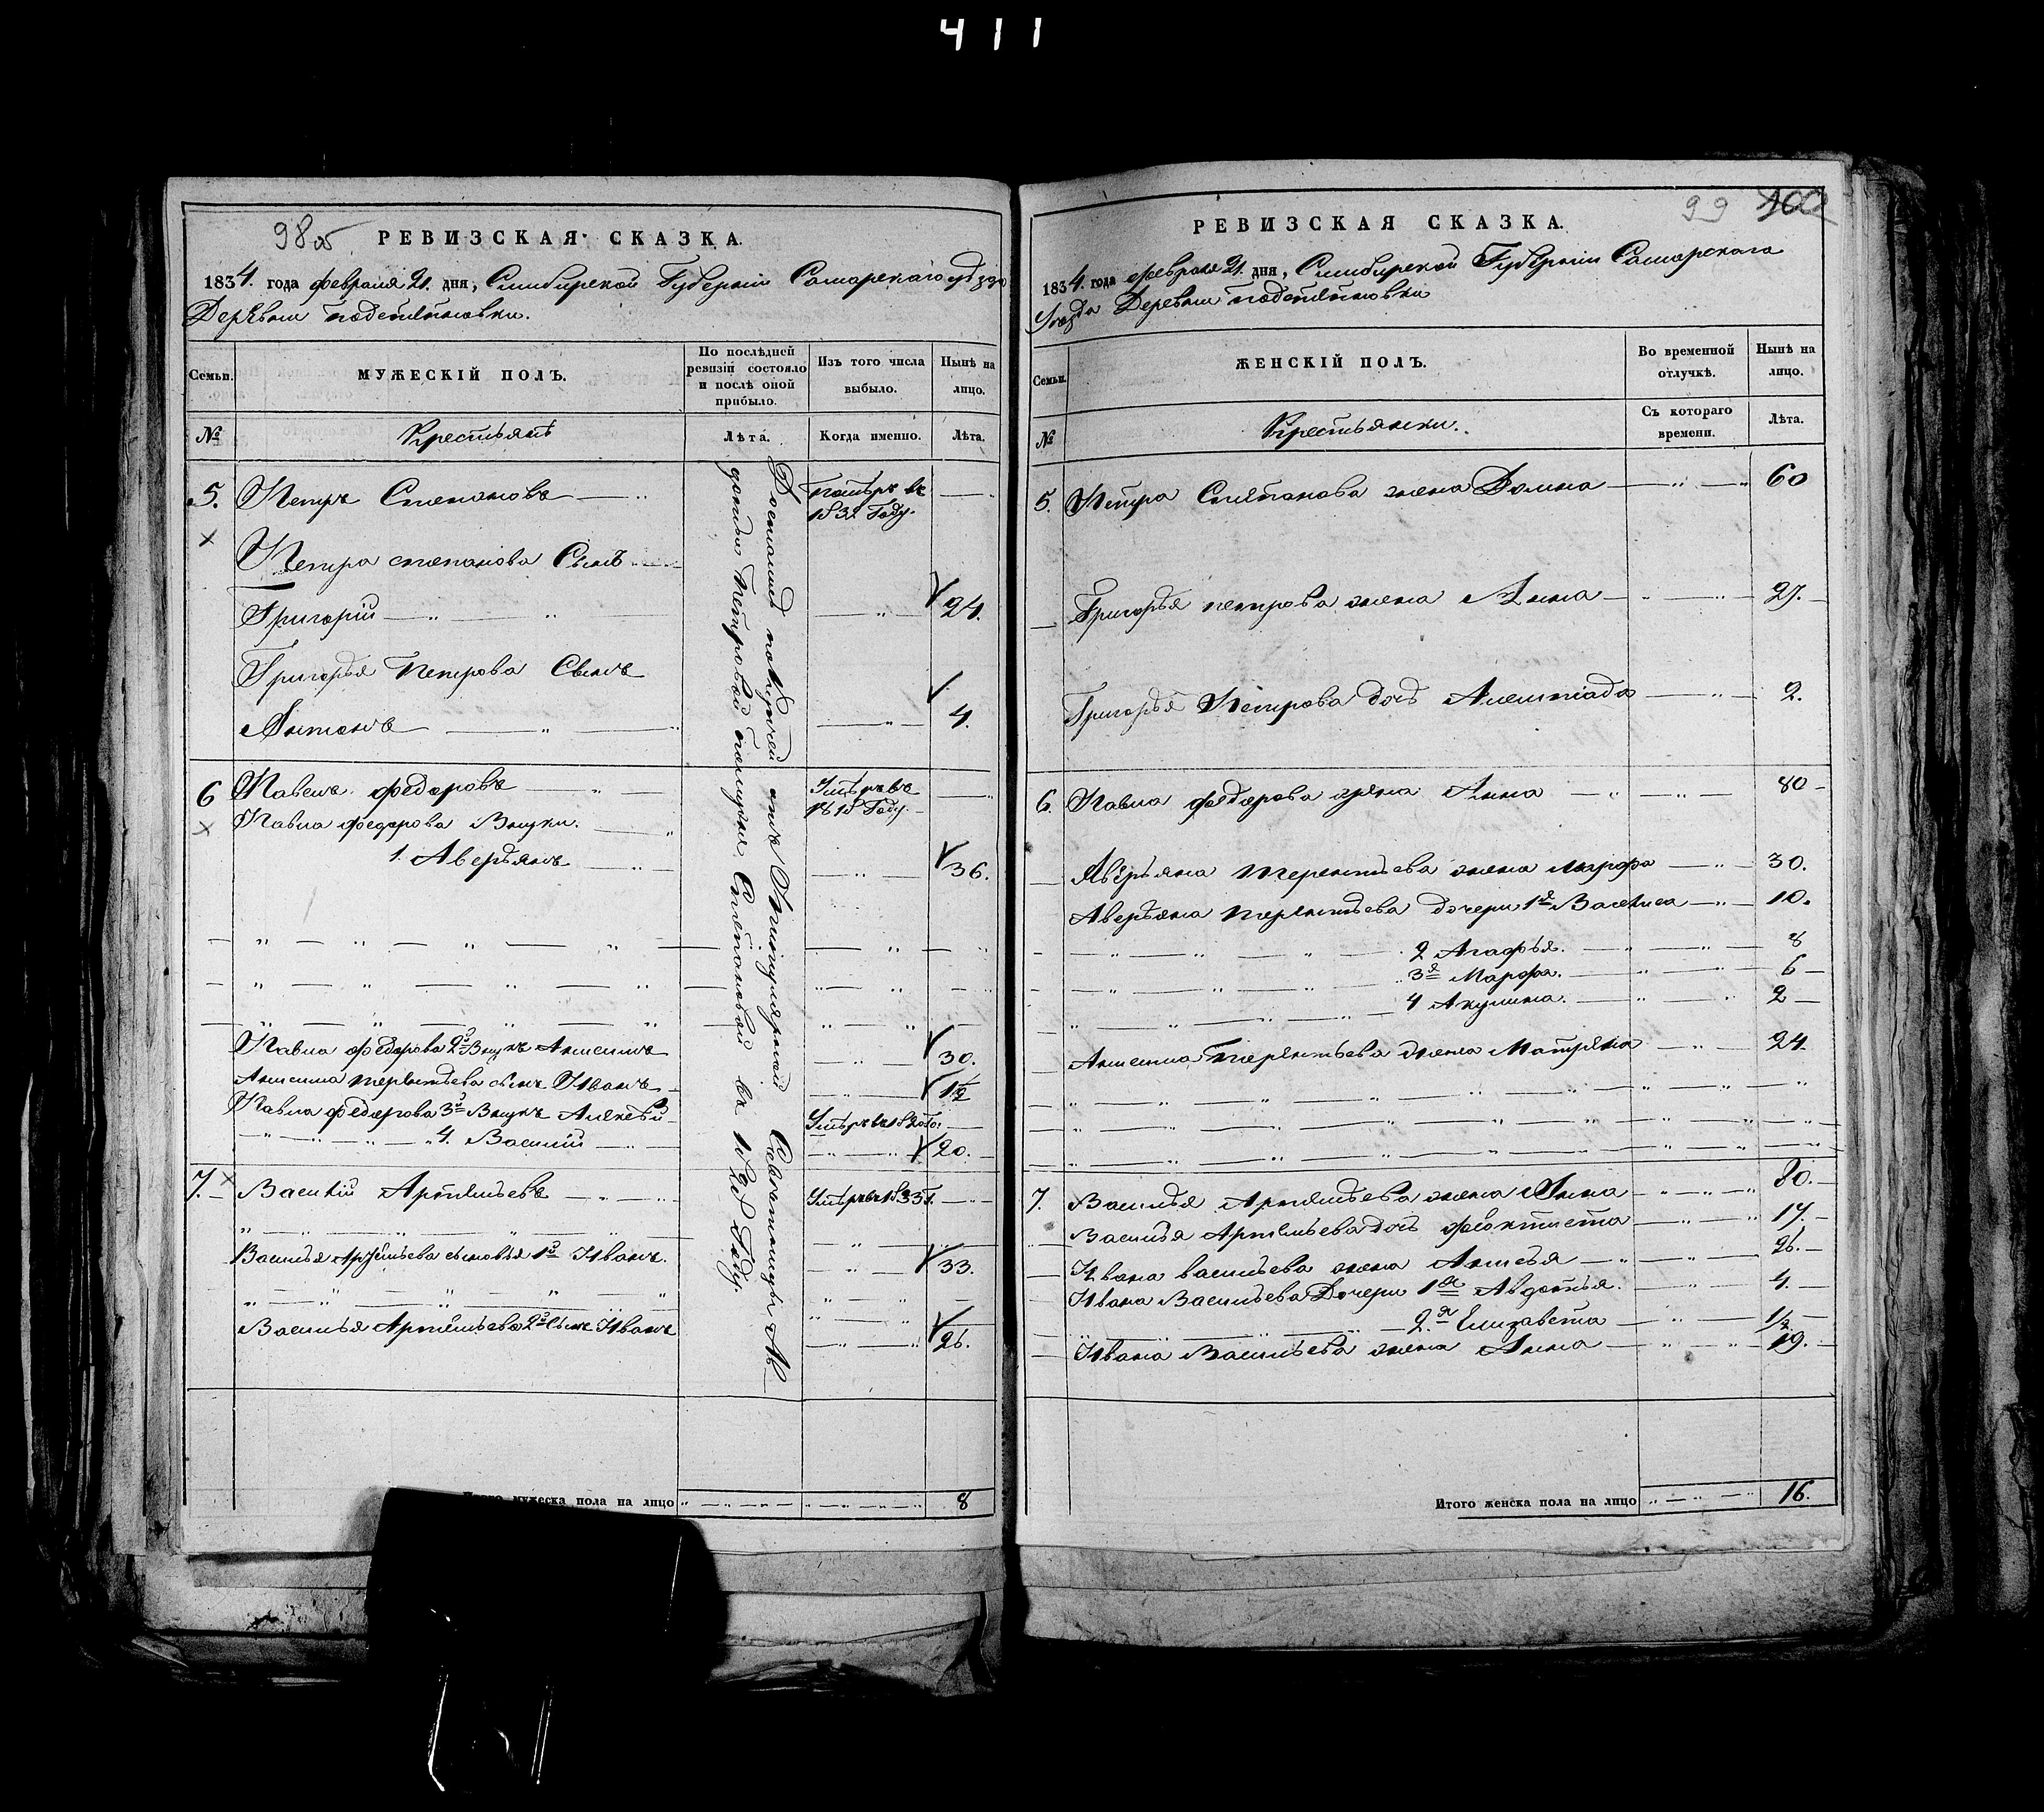 411
98об
РЕВИЗСКАЯ СКАЗКА.
1834. года февраля 21. дня, Симбирской Губернiи Самарскаго уѣзда
Деревни Подстепновки.
Семьи.
МУЖЕСКІЙ ПОЛЪ.
По послѣдней ревизіи состояло и послѣ оной прибыло.
Изъ того числа выбыло.
Нынѣ на лицо.
№
Крестьянъ
Лѣта.
Когда именно.
Лѣта.
Достался по купчей отъ
Петровой Степановой въ Году.
5. Петръ Степановъ 1832 Году.
Петра степанова Сынъ
Григорій 24.
Григорья Петрова Сынъ
Антонъ 4.
6 Павелъ федоровъ Умеръ въ
Году.
Павла федорова Внуки.
1. Аверьянъ 36.
Павла федорова 2й Внукъ Анисимъ 30.
Анисима терентьева сынъ Иванъ 1½
Павла федорова 3й Внукъ Алексѣй
4. Василій 20.
7. Василій Артемьевъ
Василья Артемьева сыновья 1й Иванъ. 33.
Василья Артемьева 2й Сынъ Иванъ 26.
Итого мужеска пола на лицо 8
99 100
РЕВИЗСКАЯ СКАЗКА.
1834. года февраля 21. дня, Симбирской Губерніи Самарскаго
Уѣзда Деревни Подстепновки
Семьи.
ЖЕНСКІЙ ПОЛЪ.
Во временной отлучкѣ.
Нынѣ на лицо.
№
Крестьянки.
Съ котораго времени.
Лѣта.
5. Петра Степанова жена Домна 60
Григорья петрова жена Анна 27.
Григорья Петрова дочь 2.
6. Павла федорова жена Анна 80
Аверьяна терентьева жена Марфа 30.
Аверьяна терентьева дочери 1я Василиса 10.
2 Агафья. 8
3я Марфа. 6
4 Акулина. 2
Анисима Терентьева жена Матрена 24
7. Василья Артемьева жена Анна 80.
Василья Артемьева дочь феоктиста 17.
Ивана васильева жена Анисья 26.
Ивана Васильева Дочери 1я Авдотья. 4.
2.я Елизавета 1½
Ивана Васильева жена Анна 19.
Итого женска пола на лицо 16.